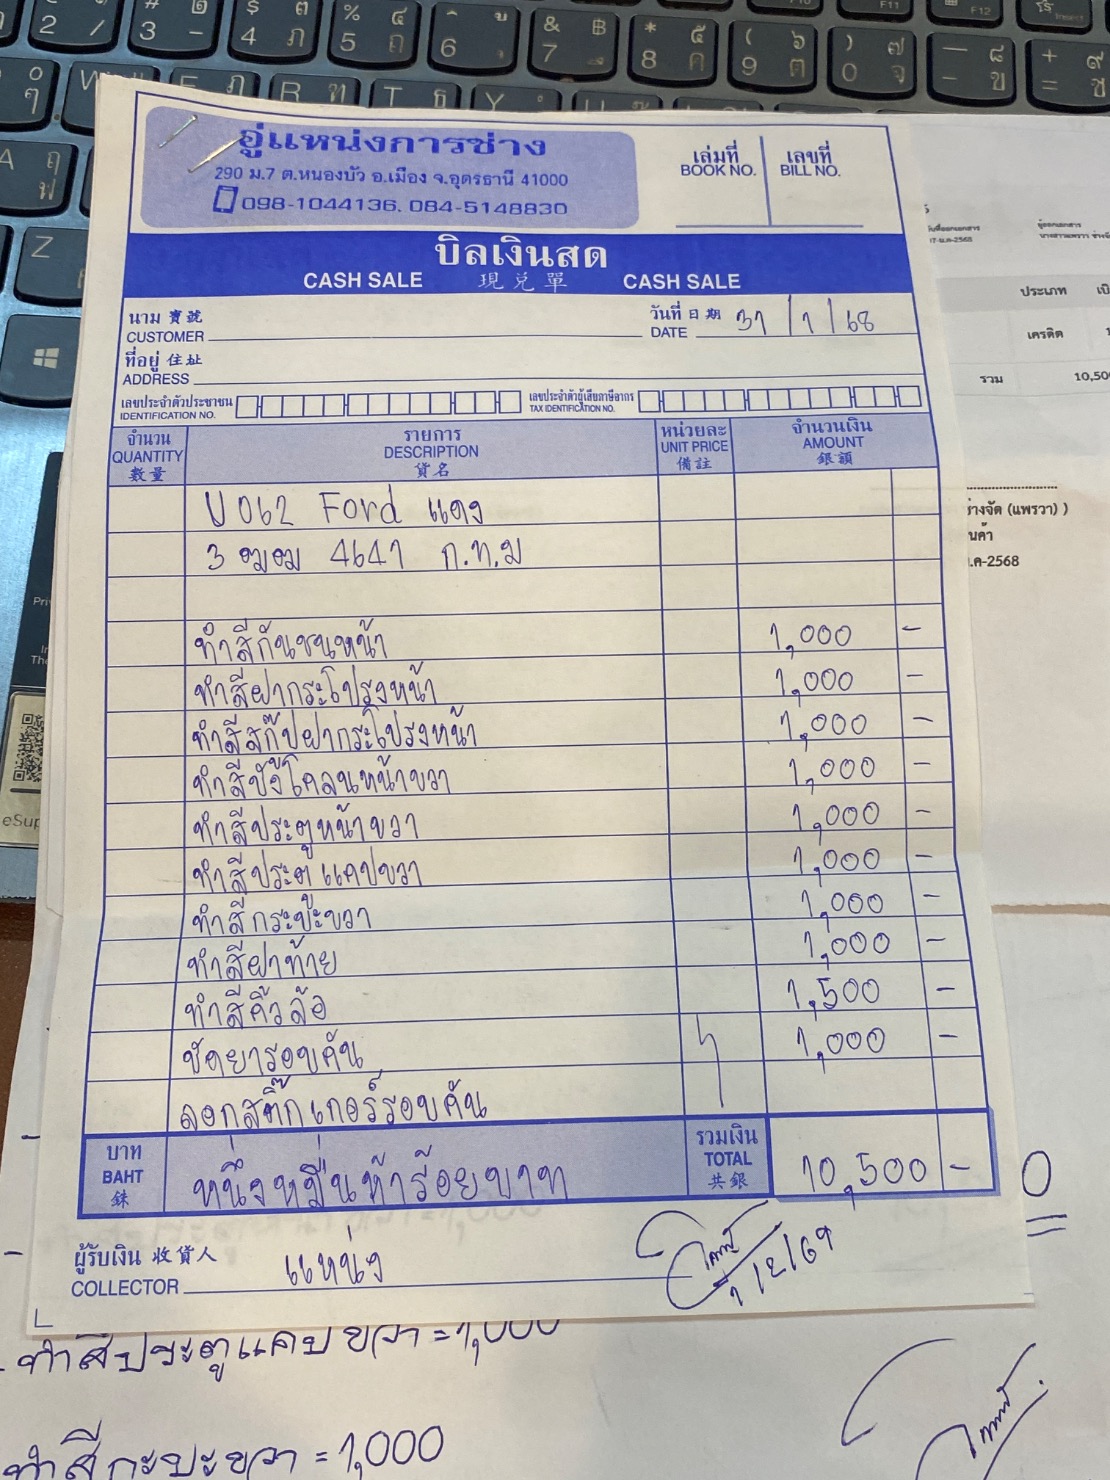 อู่แหน่งการช่าง
290 ม.7 ต.หนองบัว อ.เมือง จ.อุดรธานี 41000
098-1044136. 084-5148830
เล่มที่ เลขที่
BOOK NO. BILL NO.
บิลเงินสด
CASH SALE 現兌單 CASH SALE
นาม 寶號 วันที่ 日期 31/1/68
CUSTOMER DATE
ที่อยู่ 住址
ADDRESS
เลขประจำตัวประชาชน เลขประจำตัวผู้เสียภาษีอากร
IDENTIFICATION NO. TAX IDENTIFICATION NO.
จำนวน รายการ หน่วยละ จำนวนเงิน
QUANTITY DESCRIPTION UNIT PRICE AMOUNT
數量 貨名 備註 銀額
U062 Ford แดง
3 ฒฒ 4641 ก.ท.ม
ทำสีกันชนหน้า 1,000 -
ทำสีฝากระโปรงหน้า 1,000 -
ทำสีสกู๊ปฝากระโปรงหน้า 1,000 -
ทำสีบังโคลนหน้าขวา 1,000 -
ทำสีประตูหน้าขวา 1,000 -
ทำสีประตูแคปขวา 1,000 -
ทำสีกระบะขวา 1,000 -
ทำสีฝาท้าย 1,000 -
ทำสีคิ้วล้อ 1,500 -
ขัดยารอบคัน 1,000 -
ลอกสติ๊กเกอร์รอบคัน
บาท รวมเงิน
BAHT หนึ่งหมื่นห้าร้อยบาท TOTAL 10,500 -
銖 共銀
ผู้รับเงิน 收貨人 แหน่ง
COLLECTOR
ทำสีประตูแคบขวา = 1,000
ทำสีกะบะขวา = 1,000
ประเภท
เครดิต
รวม 10,50
ช่างจัด (แพรวา) )
.ค-2568